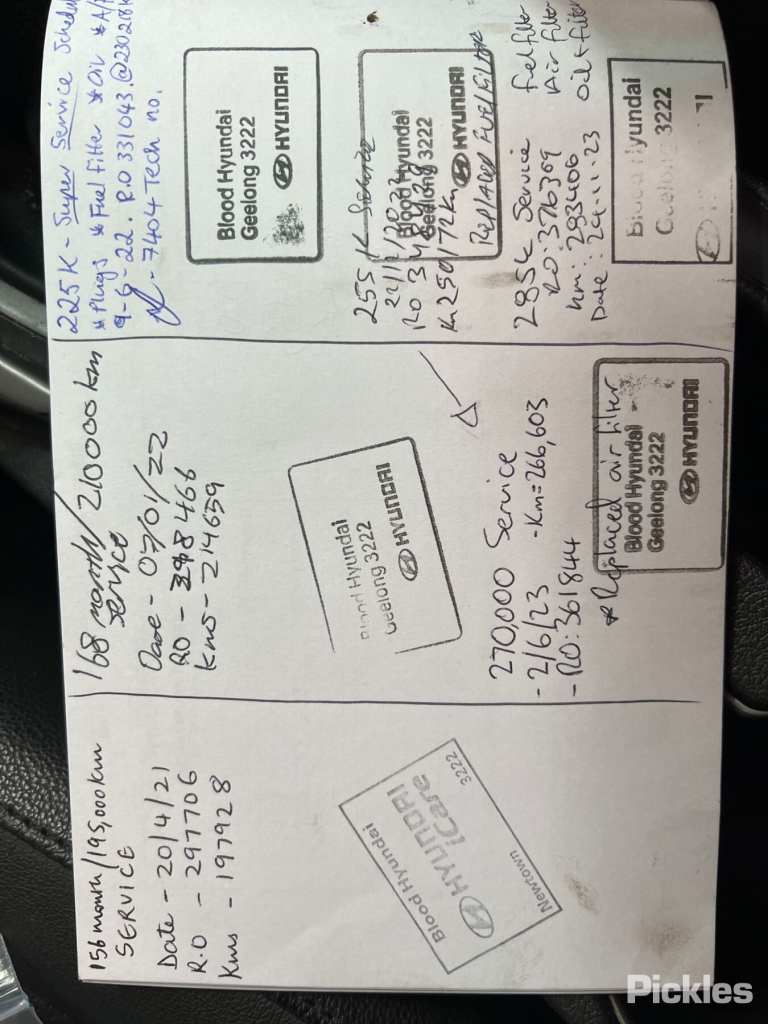 156 month/195,000 km
SERVICE
Date - 20/4/21
R.O - 297706
Kms - 197928
Blood Hyundai
HYUNDAI
iCare
Newtown 3222
168 month/210000 km
service
Date - 07/01/22
RO -
Kms - 214659
Blood Hyundai
Geelong 3222
HYUNDAI
270,000 Service
- 2/6/23 - Km = 266,603
- RO: 361844
* Replaced air filter
Blood Hyundai
Geelong 3222
HYUNDAI
225K - Super Service
* Plugs * Fuel Filter * Oil
9-6-22. R.O 331043. @
- 7404 Tech no.
Blood Hyundai
Geelong 3222
HYUNDAI
255K Service
RO
Km 250172 km
Replaced Fuel Filter
Blood Hyundai
Geelong 3222
HYUNDAI
285K Service Fuel filter
RO: 376369 Air filter
km: 293406 Oil + filter
Date: 24-11-23
Blood Hyundai
Geelong 3222
Pickles